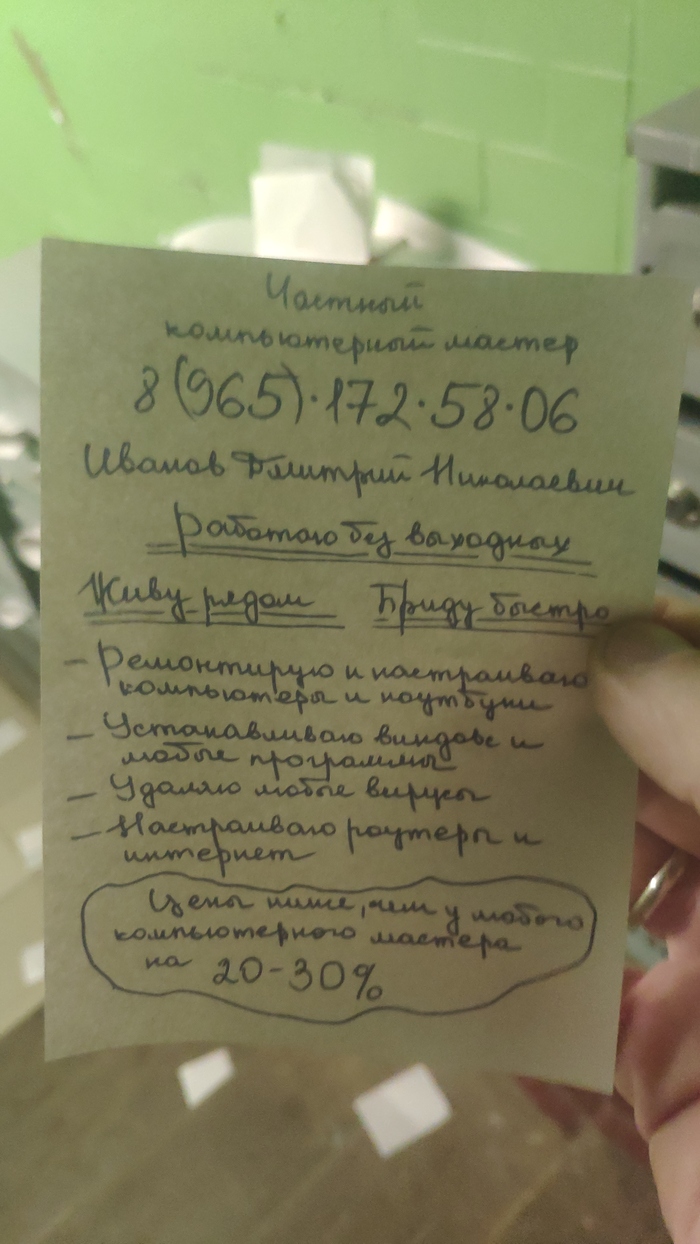 Частный
компьютерный мастер
8(965)·172·58·06
Иванов Дмитрий Николаевич
Работаю без выходных
Живу рядом Приду быстро
- Ремонтирую и настраиваю
компьютеры и ноутбуки
- Устанавливаю виндовс и
любые программы
- Удаляю любые вирусы
- Настраиваю роутеры и
интернет
Цены ниже, чем у любого
компьютерного мастера
на 20-30%